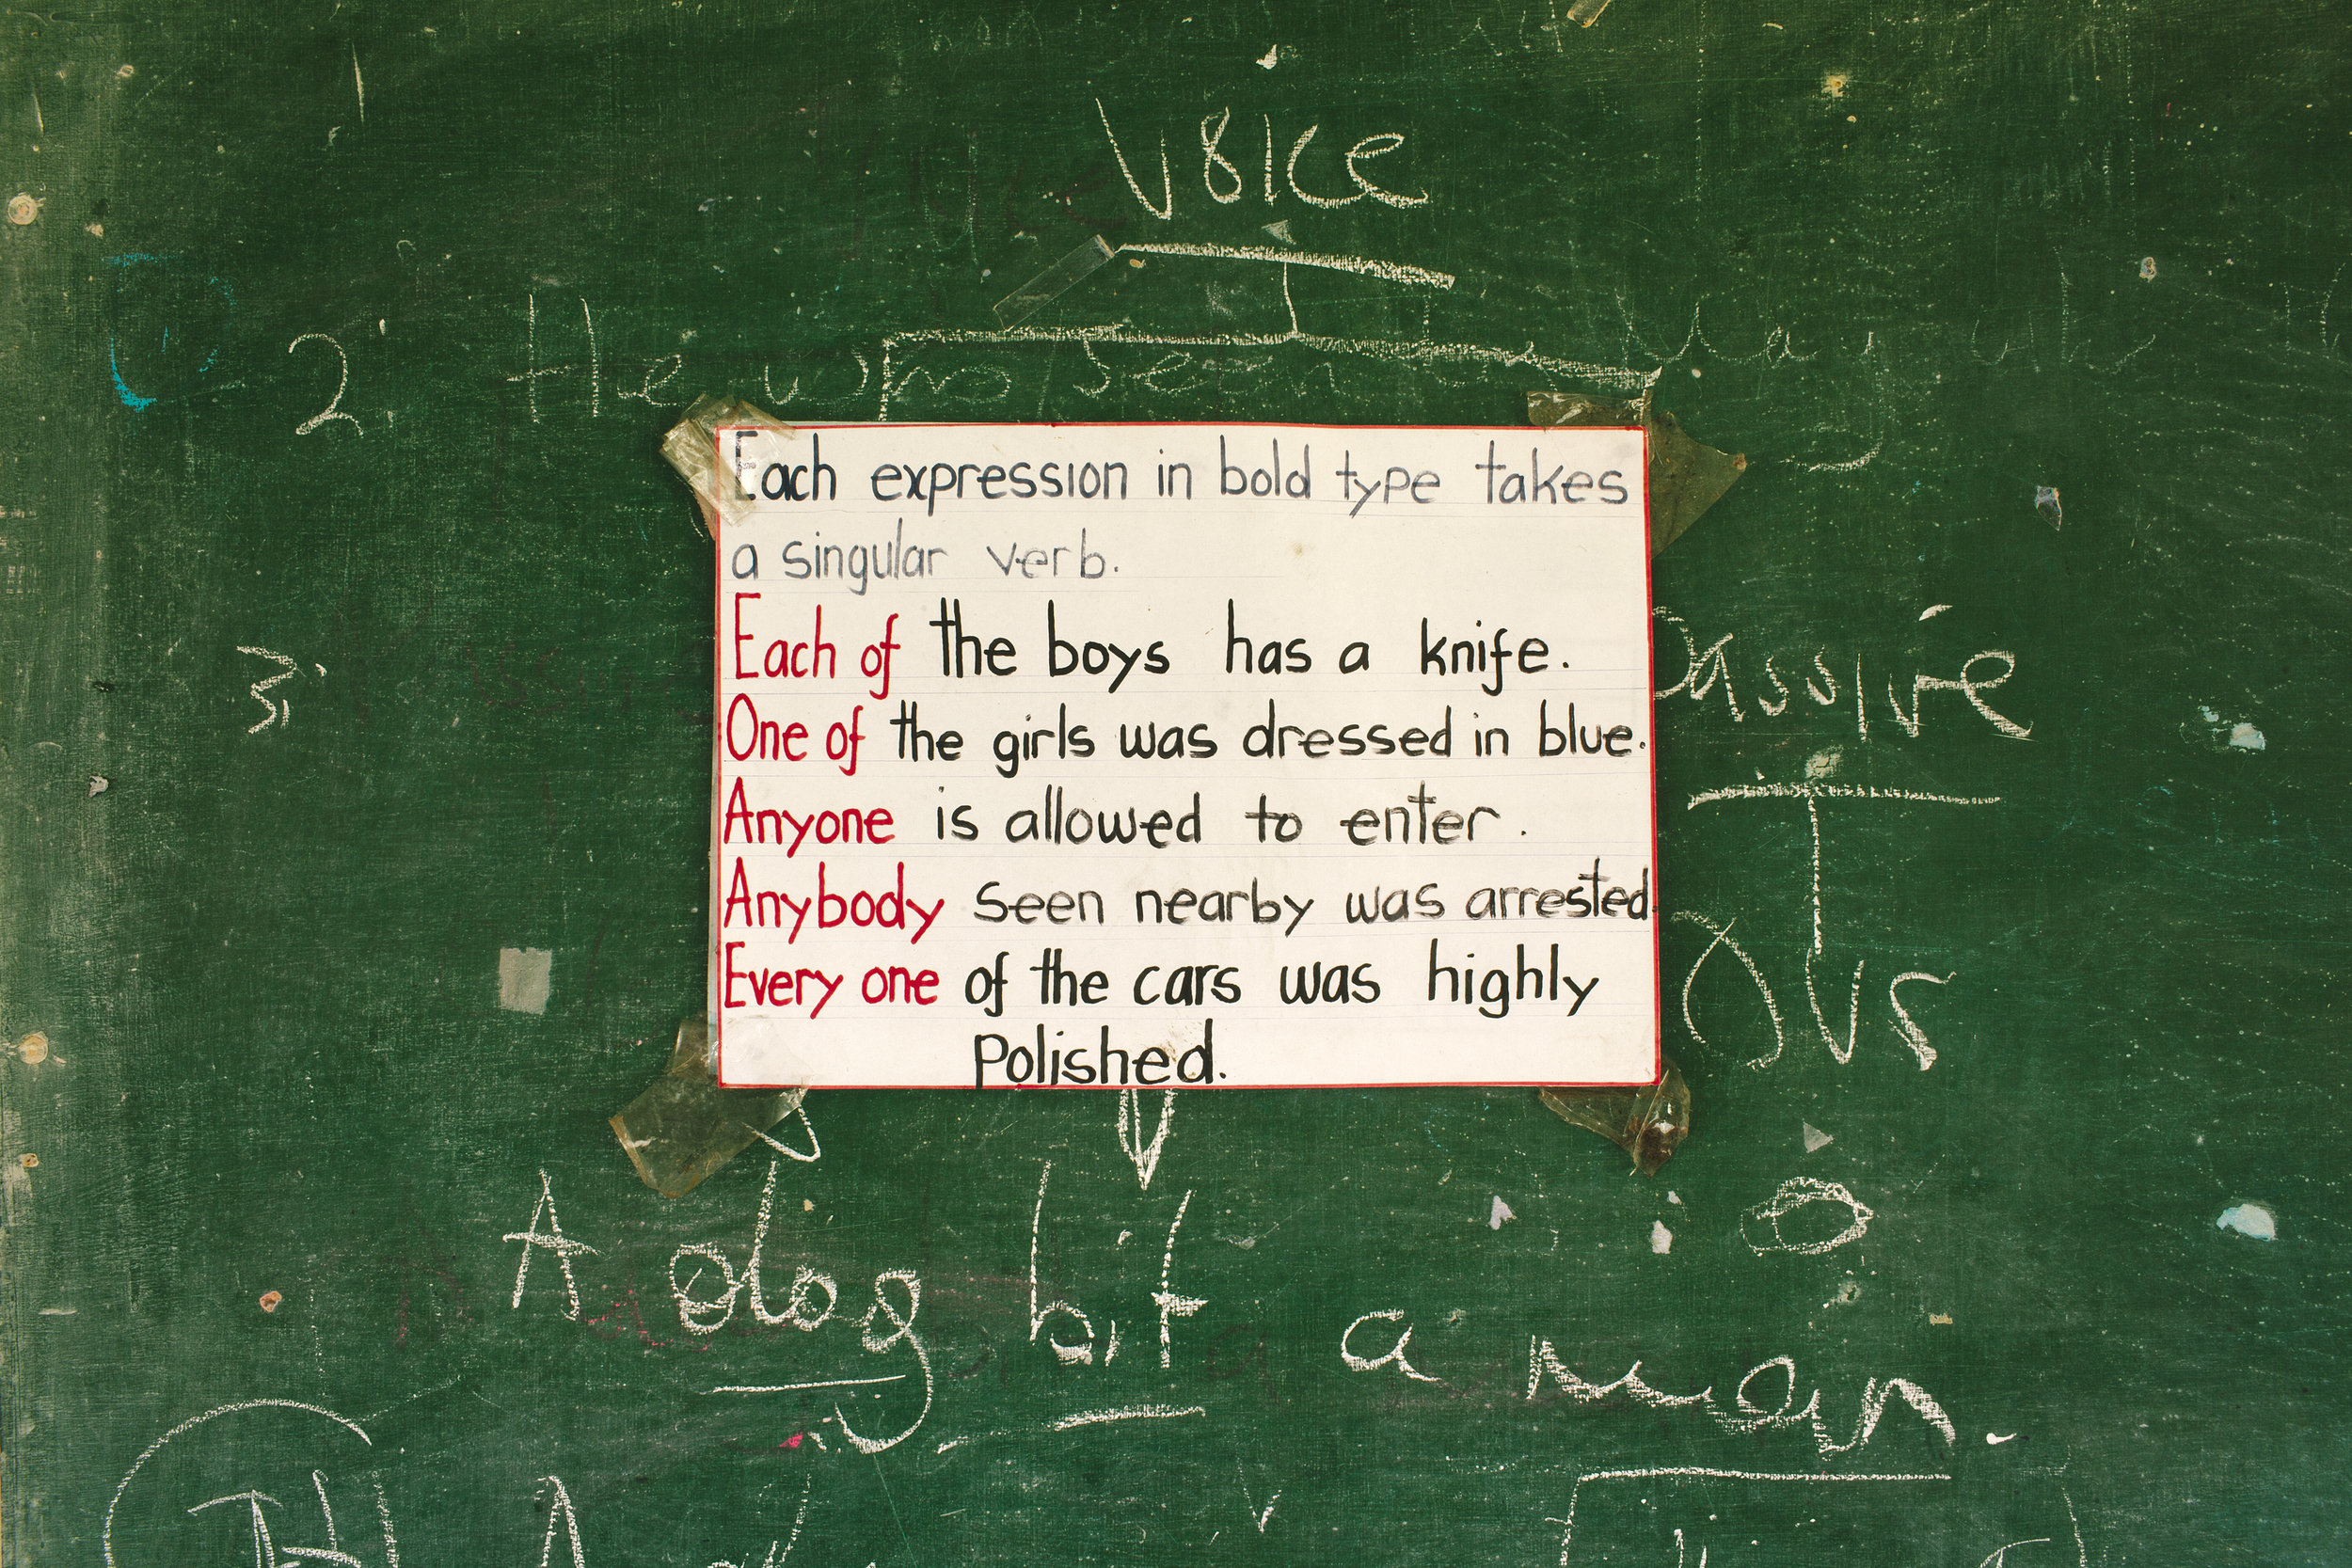 Voice
2. He who seen
Each expression in bold type takes
a singular verb.
Each of the boys has a knife.
One of the girls was dressed in blue.
3.
Passive
Anyone is allowed to enter.
Anybody seen nearby was arrested.
Every one of the cars was highly
Polished.
OVS
A dog bit a man.